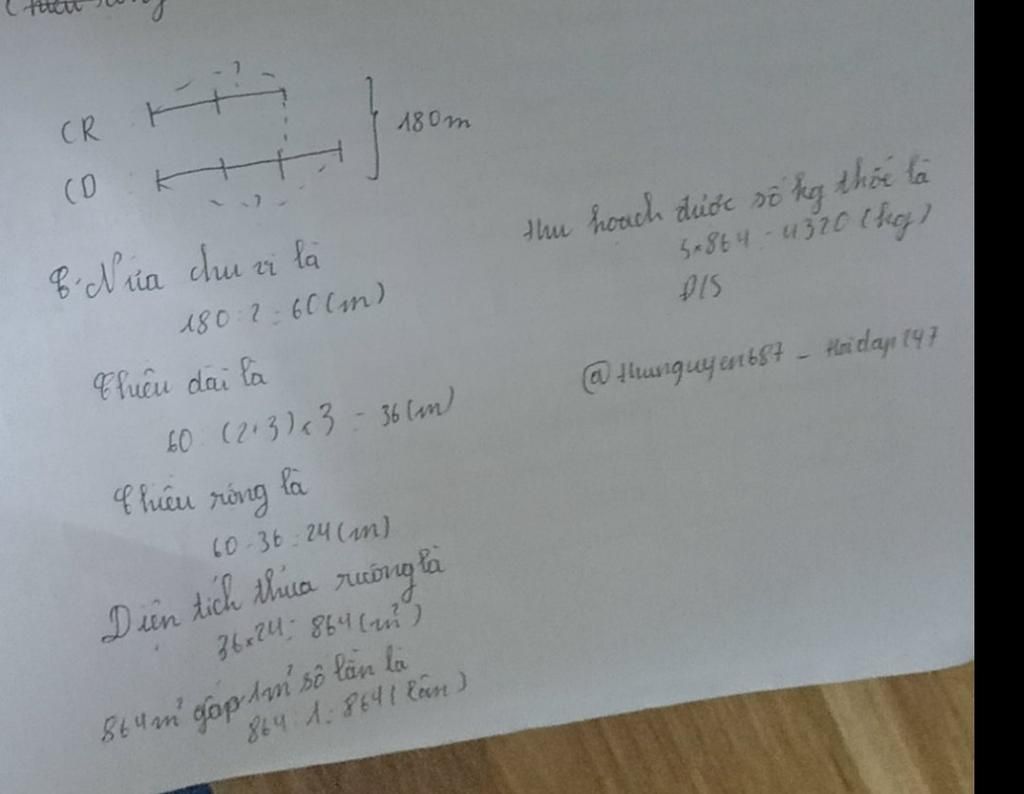 CR
CD
?
?
180m
Nửa chu vi là
180 : 2 = 60 (m)
Chiều dài là
60 : (2+3) x 3 = 36 (m)
Chiều rộng là
60 - 36 = 24 (m)
Diện tích thửa ruộng là
36 x 24 = 864 (m²)
864m² gấp 1m² số lần là
864 : 1 = 864 (lần)
thu hoạch được số kg thóc là
5 x 864 = 4320 (kg)
Đ/S
@thunguyen687 - Hoidap247